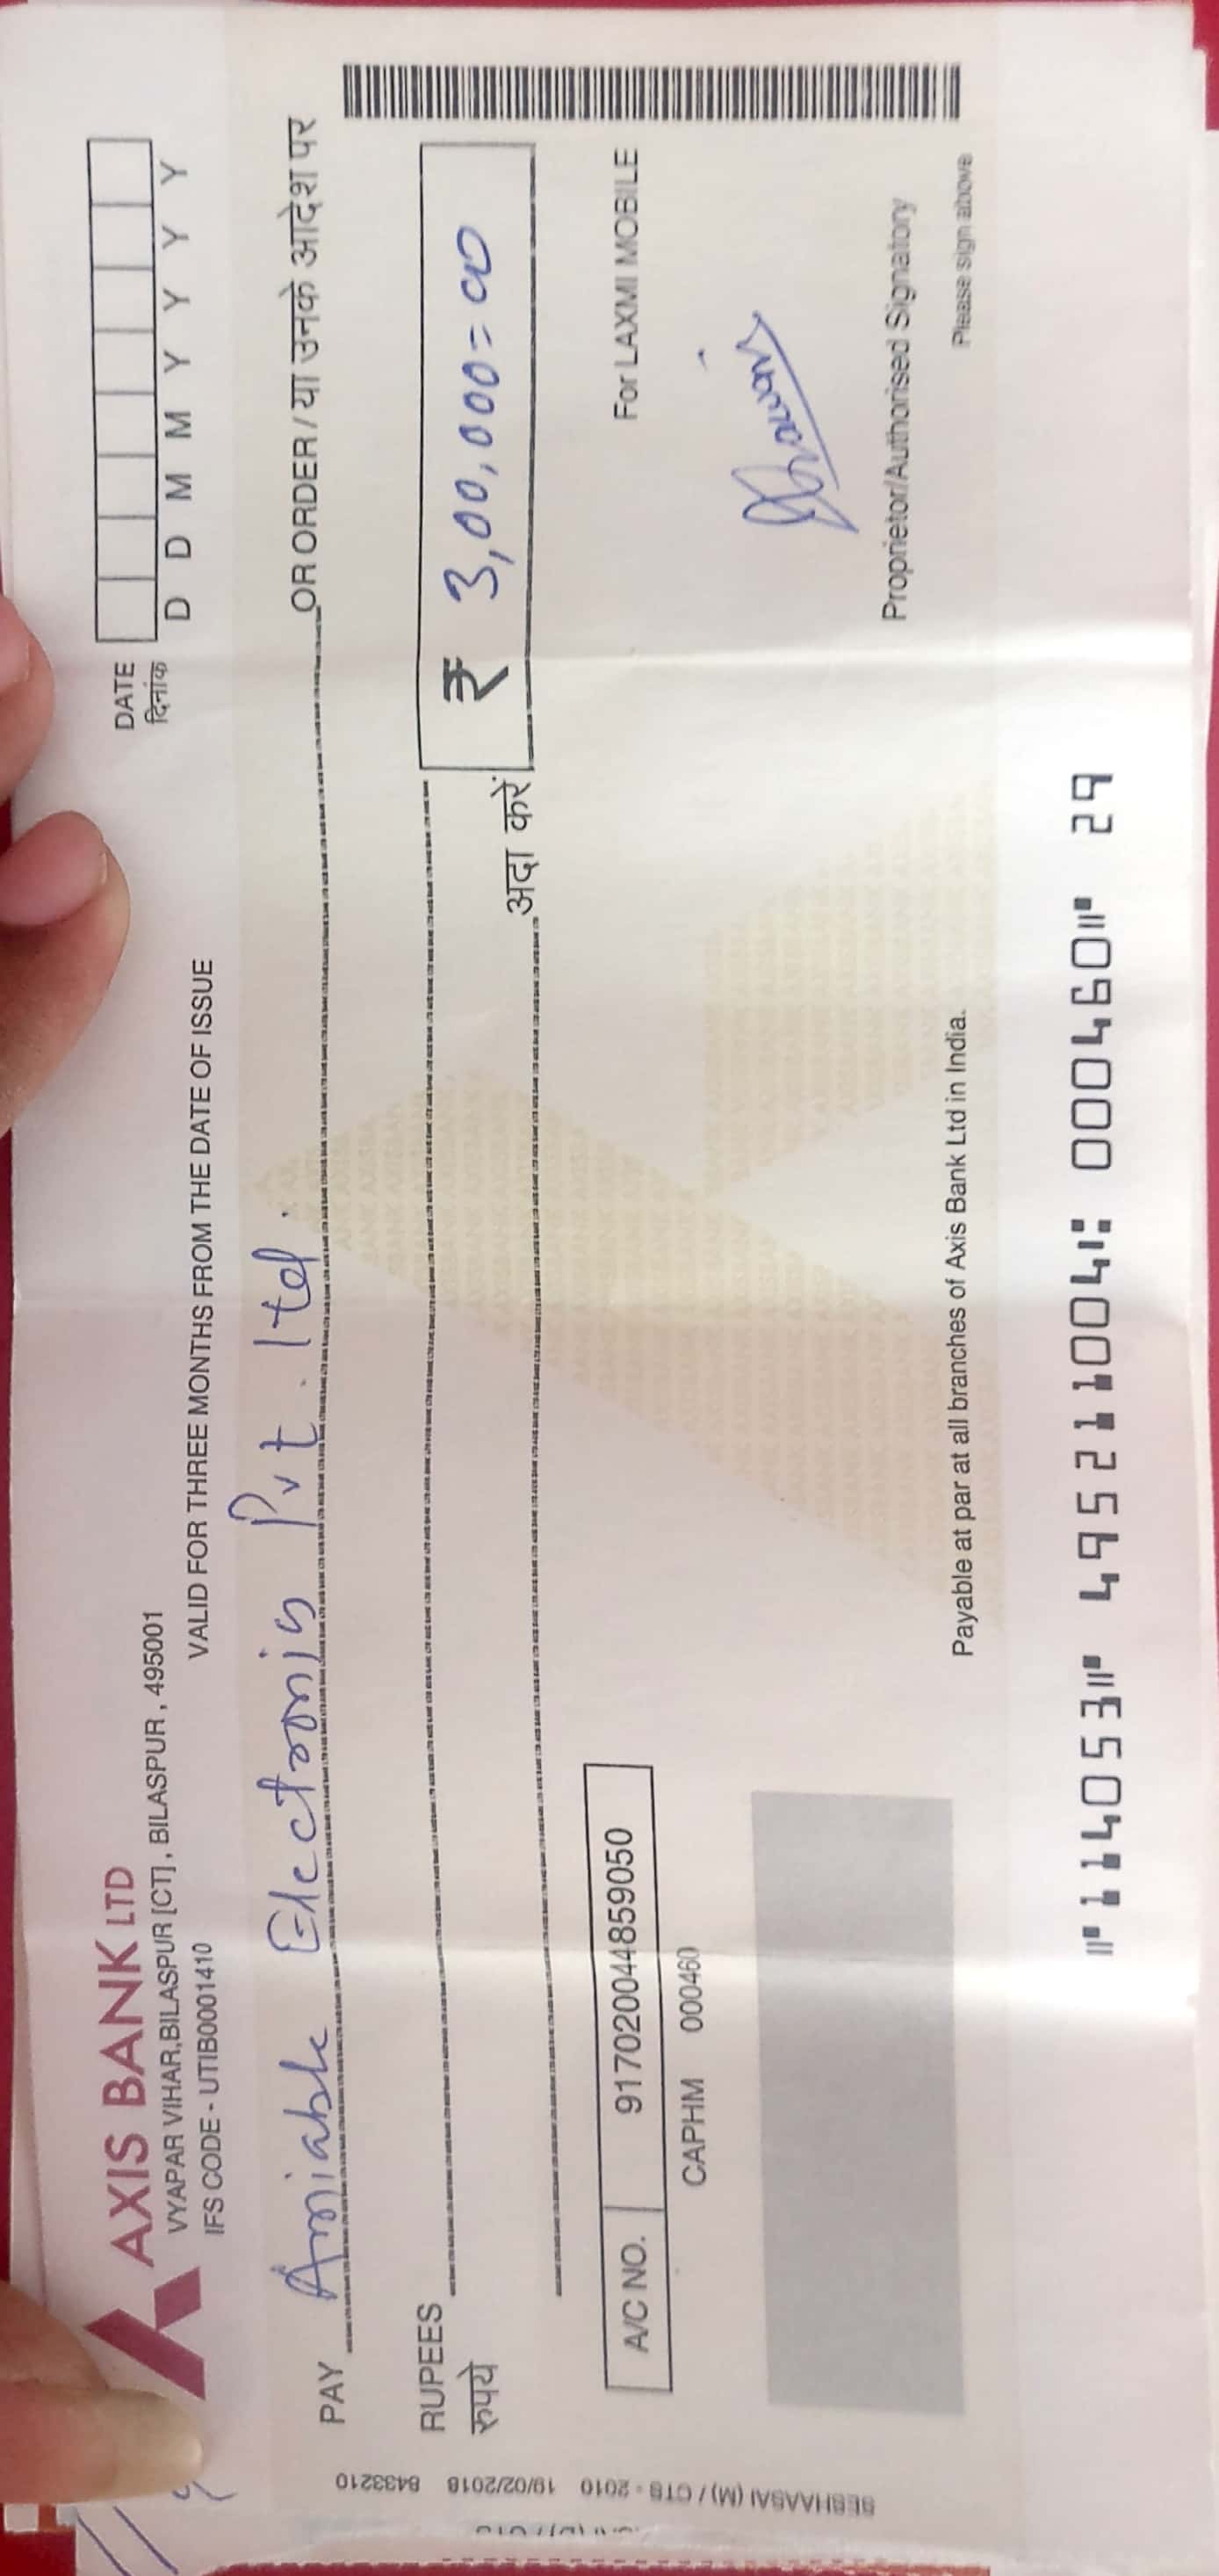 AXIS BANK LTD
VYAPAR VIHAR,BILASPUR [CT] , BILASPUR , 495001
IFS CODE - UTIB0001410
VALID FOR THREE MONTHS FROM THE DATE OF ISSUE
DATE
दिनांक
D D M M Y Y Y Y
PAY Amiable Electronis Pvt. ltd. OR ORDER / या उनके आदेश पर
RUPEES
रुपये
अदा करें
₹ 3,00,000=00
A/C NO. 917020044859050
CAPHM 000460
For LAXMI MOBILE
Proprietor/Authorised Signatory
Please sign above
Payable at par at all branches of Axis Bank Ltd in India.
⑈114053⑈ 495211004⑆ 000460⑈ 29
SESHAASAI (M) / CTS - 2010 19/02/2018 8433210